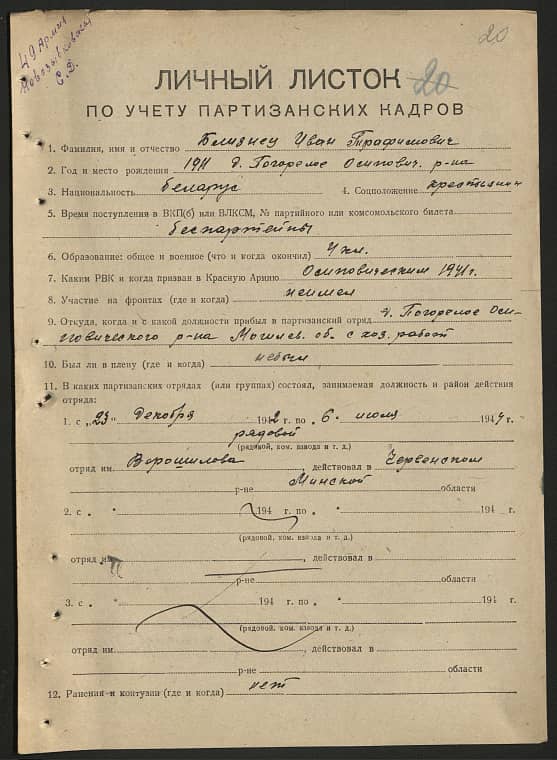 20
49 Армия
С.Д.
ЛИЧНЫЙ ЛИСТОК 20
ПО УЧЕТУ ПАРТИЗАНСКИХ КАДРОВ
1. Фамилия, имя и отчество Близнец Иван Трафимович
2. Год и место рождения 1911 д. Погорелое Осипович. р-на
3. Национальность беларус 4. Соцположение крестьянин
5. Время поступления в ВКП(б) или ВЛКСМ, № партийного или комсомольского билета
беспартейны
6. Образование: общее и военное (что и когда окончил) 4 кл.
7. Каким РВК и когда призван в Красную Армию Осиповическим 1941 г.
8. Участие на фронтах (где и когда) неимел
9. Откуда, когда и с какой должности прибыл в партизанский отряд д. Погорелое Оси-
повического р-на Могилев. об. с хоз. работ
10. Был ли в плену (где и когда) небыл
11. В каких партизанских отрядах (или группах) состоял, занимаемая должность и район действия
отряда:
1. с „23“ Декабря 1942 г. по „ 6. июля 1944 г.
рядовой
(рядовой, ком. взвода и т. д.)
отряд им. Ворошилова, действовал в Червенском
р-не Минской области
2. с „ “ 194 г. по „ “ 194 г.
(рядовой, ком. взвода и т. д.)
отряд им., действовал в
р-не области
3. с „ “ 194 г. по „ “ 194 г.
(рядовой, ком. взвода и т. д.)
отряд им., действовал в
р-не области
12. Ранения и контузии (где и когда) нет